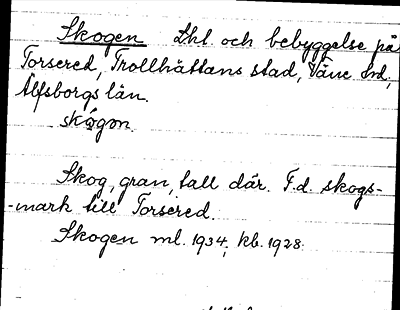 Skogen Lht och bebyggelse på
Torsered, Trollhättans stad, Väne hd,
Älfsborgs län.
skógon.
Skog, gran, tall där. F.d. skogs-
-mark till Torsered.
Skogen ml. 1934; kb. 1928.